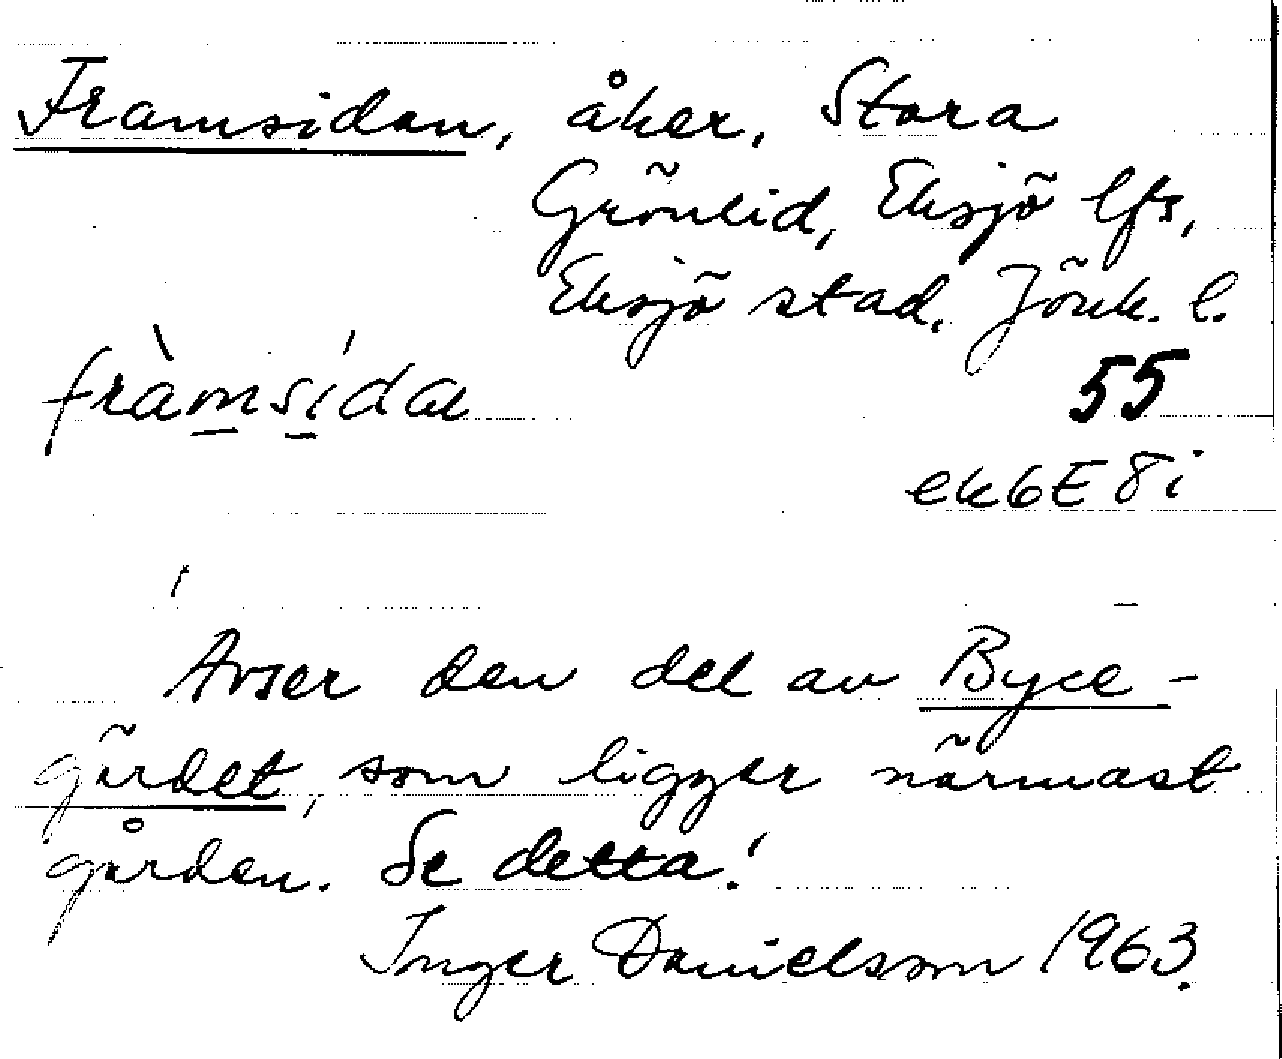 Framsidan, åker, Stora
Grönlid, Eksjö lfs,
Eksjö stad, Jönk. l.
fràmsída
55
ek6E8i
Avser den del av Byce-
gärdet, som ligger närmast
gården. Se detta!
Inger Danielsson 1963.